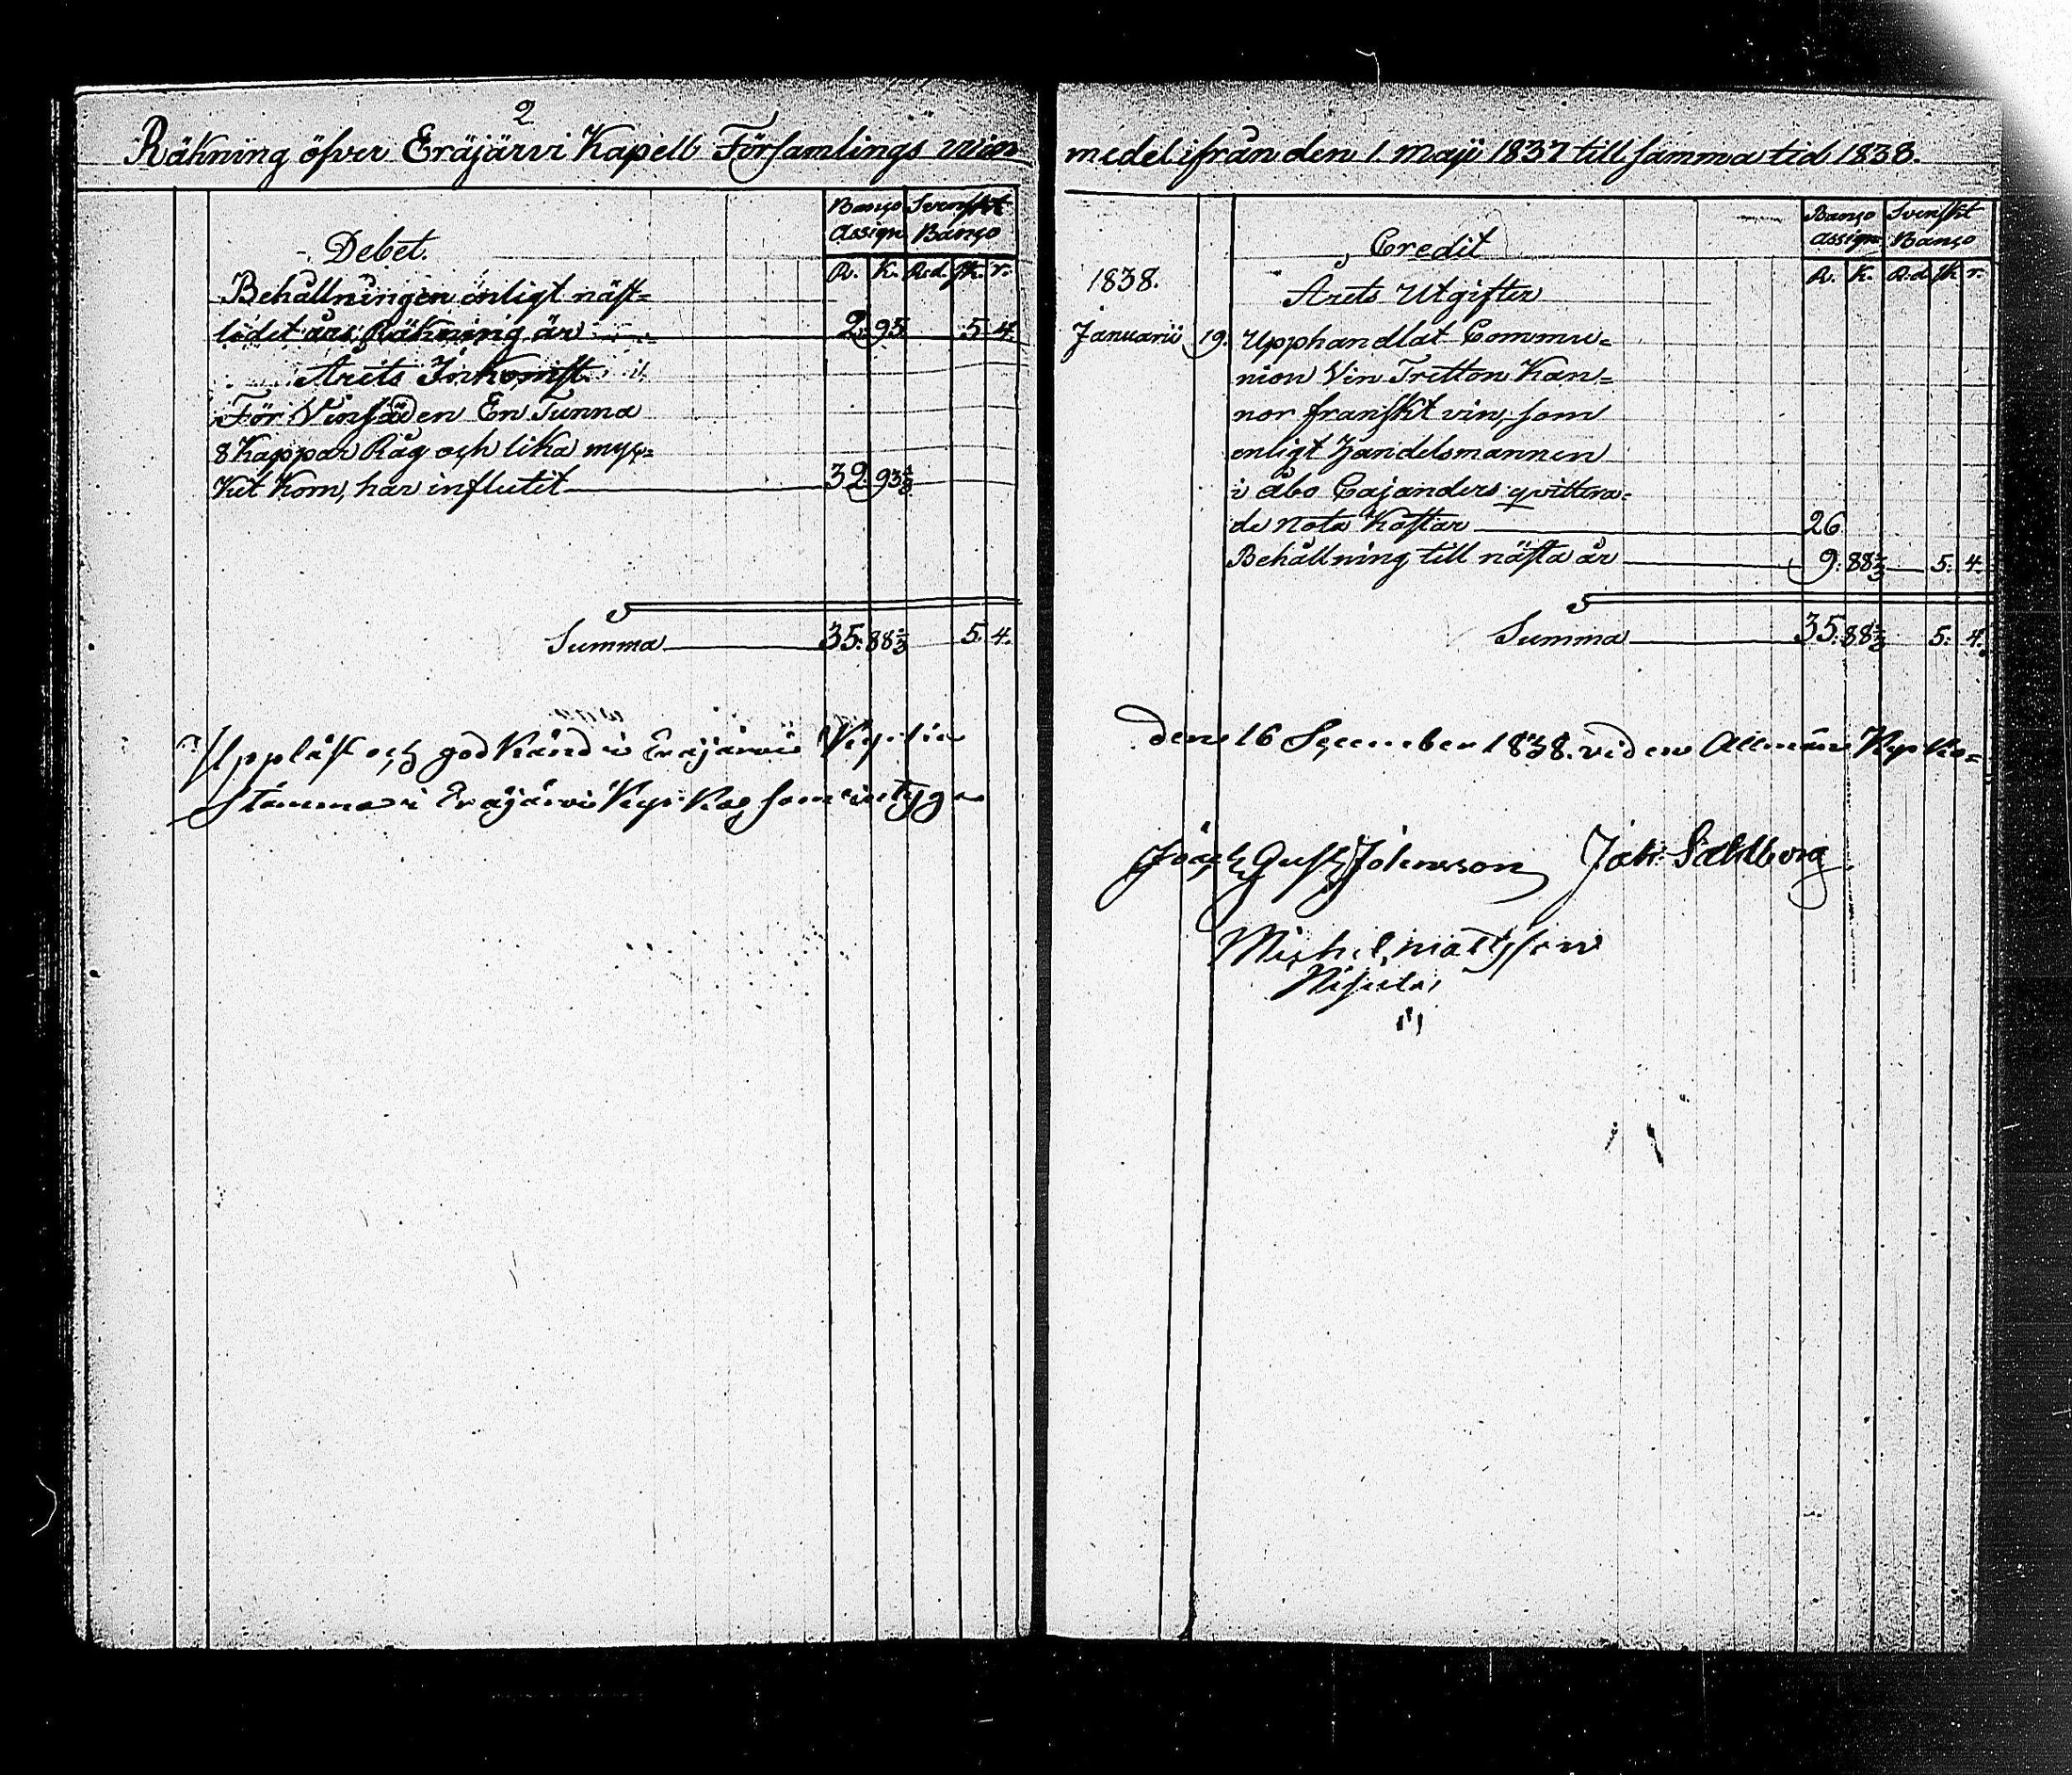 2
Räkning öfver Eräjärvi Kapell Församlings wins
Debet.
Banco Assign.
Svenskt Banco
R. K. R.d. sk. r.
Behållningen enligt näst=
lidet års Räkning är 2. 95. 5. 4.
Årets Inkomst.
För Vinsäden En Tunna
8 Kappar Råg och lika myc=
ket Korn, har influtit 32. 93⅔
Summa 35. 88⅔ 5. 4.
Uppläst och godkänd i Eräjärvi
Stämma i Eräjärvi Kyrka, som intyga
medel ifrån den 1. Maji 1837 till samma tid 1838.
Credit
Banco Assign.
Svenskt Banco
R. K. R.d. sk. r.
1838.
Årets Utgifter
Januarii 19. Upphandlat Commu=
nion Vin Tretton Kan=
nor franskt vin, som
enligt Handelsmannen
i Åbo Cajanders qvittera=
de nota kostar 26
Behållning till nästa år 9. 88⅔ 5. 4.
Summa 35. 88⅔ 5. 4.
den 16 September 1838. vid en Allmän Kyrko=
Gust. Johansson Joh. Sahlberg
Michel Mattsson